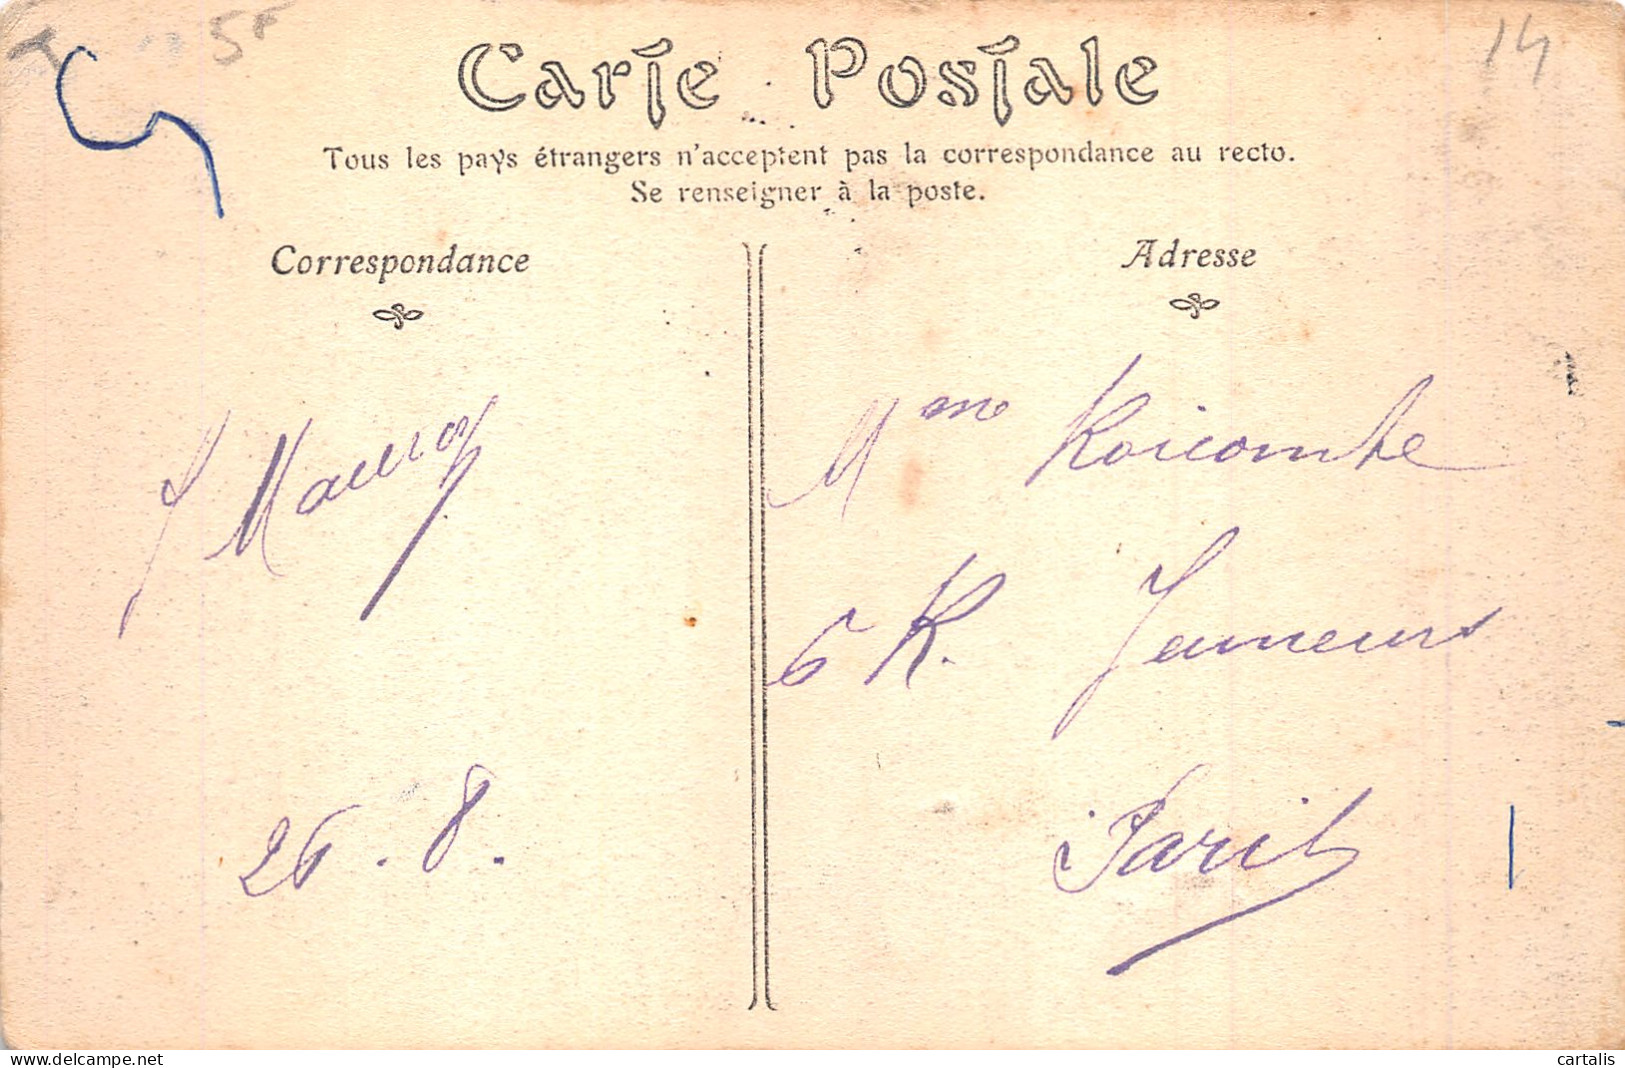 5F
14
Carte Postale
Tous les pays étrangers n'acceptent pas la correspondance au recto.
Se renseigner à la poste.
Correspondance
Adresse
Mme Roicombe
6 R. Jeuneurs
Paris
26.8.
delcampe.net
cartalis